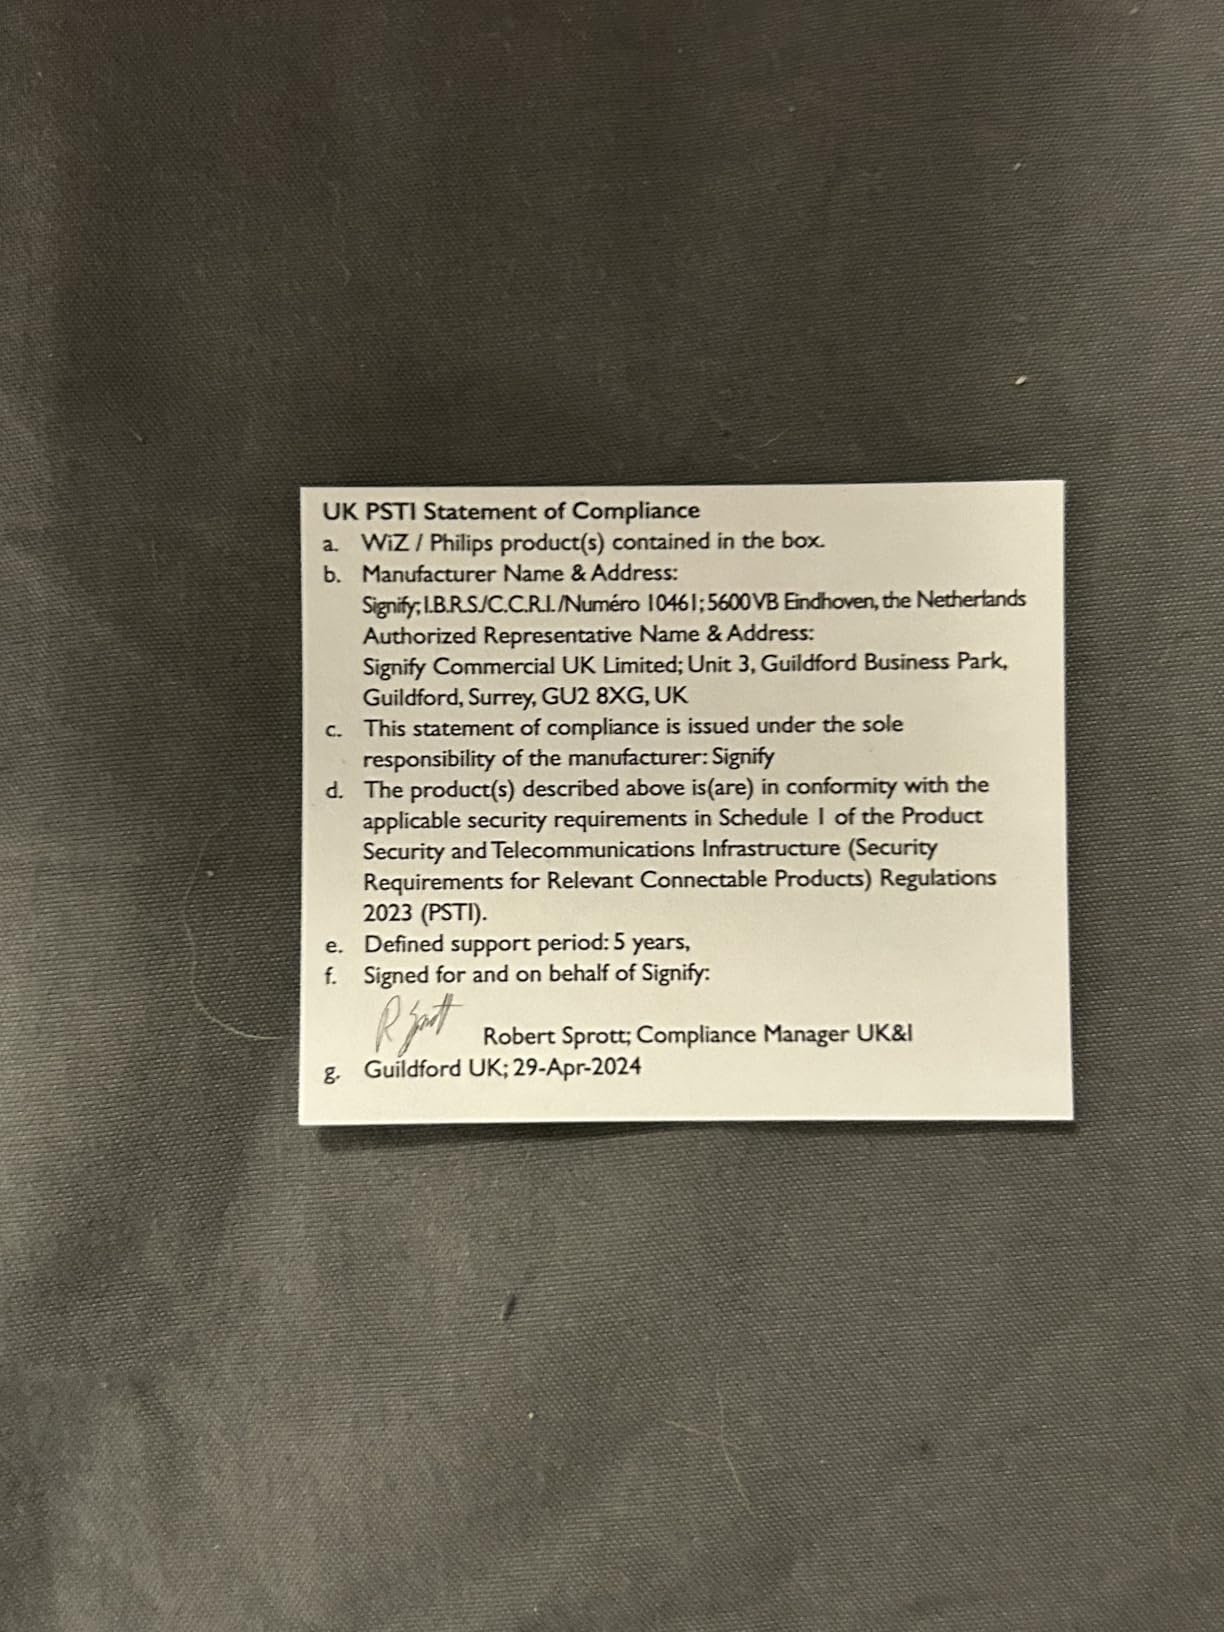 UK PSTI Statement of Compliance
a. WiZ / Philips product(s) contained in the box.
b. Manufacturer Name & Address:
Signify; I.B.R.S./C.C.R.I./Numéro 10461; 5600VB Eindhoven, the Netherlands
Authorized Representative Name & Address:
Signify Commercial UK Limited; Unit 3, Guildford Business Park,
Guildford, Surrey, GU2 8XG, UK
c. This statement of compliance is issued under the sole
responsibility of the manufacturer: Signify
d. The product(s) described above is(are) in conformity with the
applicable security requirements in Schedule 1 of the Product
Security and Telecommunications Infrastructure (Security
Requirements for Relevant Connectable Products) Regulations
2023 (PSTI).
e. Defined support period: 5 years,
f. Signed for and on behalf of Signify:
R Sprott Robert Sprott; Compliance Manager UK&I
g. Guildford UK; 29-Apr-2024